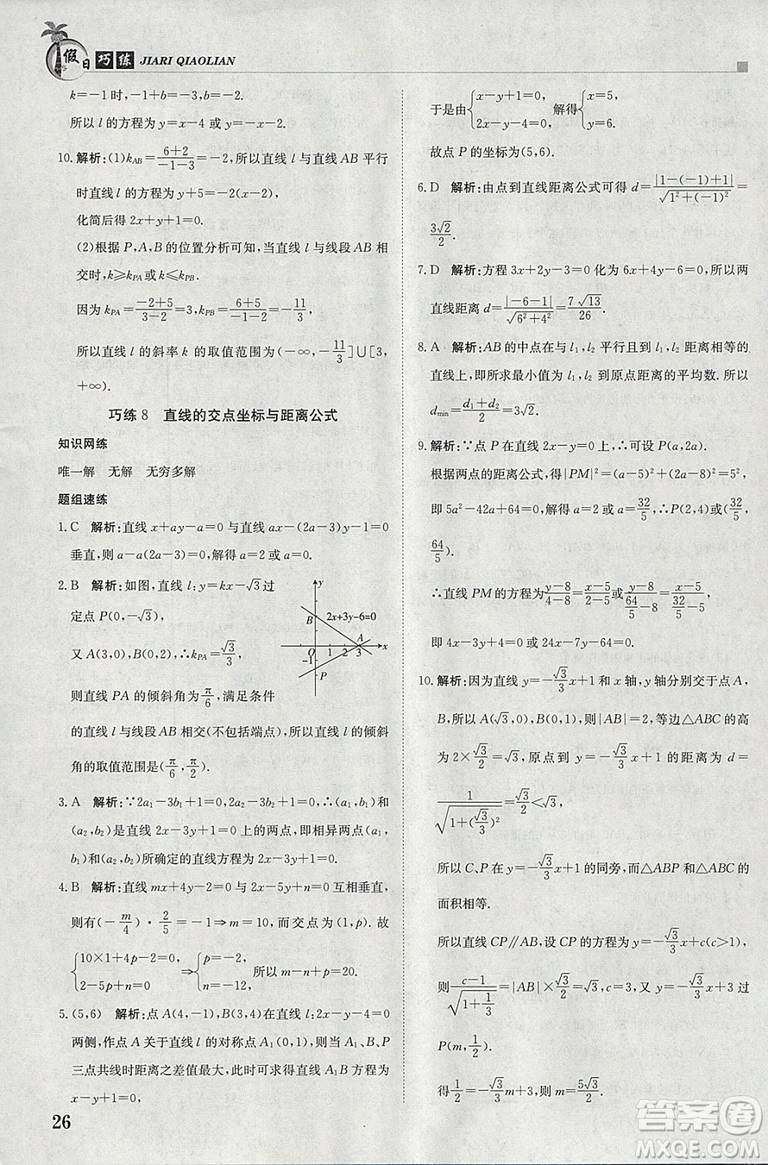 假日巧练 JIARI QIAOLIAN
k=-1时,-1+b=-3,b=-2.
所以 l 的方程为 y=x-4 或 y=-x-2.
10. 解析:(1)k_{AB}=\frac{6+2}{-1-3}=-2,因为直线 l 与直线 AB 平行
时直线 l 的方程为 y+5=-2(x-2)
化简后得 2x+y+1=0.
(2)根据 P,A,B 的位置分析可知,当直线 l 与线段 AB 相
交时,k≥k_{PA} 或 k≤k_{PB}.
因为 k_{PA}=\frac{-2+5}{3-2}=3,k_{PB}=\frac{6+5}{-1-2}=-\frac{11}{3}
所以直线 l 的斜率 k 的取值范围为(-∞,-\frac{11}{3}]∪[3,
+∞).
巧练 8 直线的交点坐标与距离公式
知识网练
唯一解 无解 无穷多解
题组速练
1. C 解析:直线 x+ay-a=0 与直线 ax-(2a-3)y-1=0
垂直,则 a-a(2a-3)=0,解得 a=2 或 a=0.
2. B 解析:如图,直线 l:y=kx-√3过
定点 P(0,-√3),
又 A(3,0),所以 k_{PA}=\frac{√3}{3},
直线 PA 的倾斜角为\frac{π}{6},满足条件
y
B
2x+3y-6=0
A
O 1 2 3 x
-1
P
的直线 l 与直线 AB 相交(不包括端点),所以直线 l 的倾斜
角的取值范围是(\frac{π}{6},\frac{π}{2}).
3. A 解析:∵2a₁-3b₁+1=0,2a₂-3b₂+1=0,∴(a₁,b₁)和
(a₂,b₂)是直线 2x-3y+1=0 上的两点,即相异两点(a₁,
b₁)和(a₂,b₂)所确定的直线方程为 2x-3y+1=0.
4. B 解析:直线 mx+4y-2=0 与直线 2x-5y+n=0 垂直,
则有(-\frac{m}{4})·\frac{2}{5}=-1⇒m=10,两直线过点(1,p). 故
{10+4p-2=0 2-5p+n=0 ⇒{p=-2 n=-12 所以 m-n+p=20.
5. (5,6) 解析:点 A(4,-1),B(3,4)在直线 l:2x-y-4=0
两侧,作点 A 关于直线 l 的对称点 A₁(0,1),则当 A₁,B,P
三点共线时距离之差值最大,此时可求得直线 A₁B 方程为
x-y+1=0.
于是由{x-y+1=0, 2x-y-4=0, 解得{x=5, y=6.
故点 P 的坐标为(5,6).
6. D 解析:由点到直线距离公式可得 d=\frac{|1-(-1)+1|}{\sqrt{1²+(-1)²}}=
\frac{3√2}{2}.
7. D 解析:方程 3x+2y-3=0 化为 6x+4y-6=0,所以两
直线距离 d=\frac{|-6-1|}{\sqrt{6²+4²}}=\frac{7√13}{26}.
8. A 解析:AB 的中点在与 l₁,l₂ 平行且到 l₁,l₂ 距离相等的
直线上,故所求最小值为 l₁,l₂ 到原点距离的平均数,所以
d_{min}=\frac{d₁+d₂}{2}=3√2.
9. 解析:∵点 P 在直线 2x-y=0 上,∴可设 P(a,2a).
根据两点的距离公式,得|PM|²=(a-5)²+(2a-8)²=5²,
即 5a²-42a+64=0,解得 a=2 或 a=\frac{32}{5},∴P(2,4)或(\frac{32}{5},
\frac{64}{5}).
∴直线 PM 的方程为\frac{y-8}{4-8}=\frac{x-5}{2-5}或\frac{y-8}{\frac{64}{5}-8}=\frac{x-5}{\frac{32}{5}-5},
即 4x-3y+4=0 或 24x-7y-64=0.
10. 解析:因为直线 y=-\frac{√3}{3}x+1 和 x 轴,y 轴分别交于点 A,
B,所以 A(√3,0),B(0,1),所以|AB|=2,等边△ABC 的高
为 2×\frac{√3}{2}=√3,原点到直线 y=-\frac{√3}{3}x+1 的距离为 d=
\frac{1}{\sqrt{1+(\frac{√3}{3})²}}=\frac{√3}{2},
所以 C、P 在 y=-\frac{√3}{3}x+1 的同旁,而△ABP 和△ABC 的
面积相等.
所以直线 CP∥AB,设 CP 的方程为 y=-\frac{√3}{3}x+c(c>1),
则\frac{c-1}{\sqrt{1+\frac{1}{3}}}=|AB|×\frac{√3}{2}=√3,所以 c=3,y=-\frac{√3}{3}x+3,又
P(m,\frac{1}{2})
得\frac{1}{2}=-\frac{√3}{3}m+3,解得 m=\frac{5√3}{2}.
26
答案圈
MXQE.COM